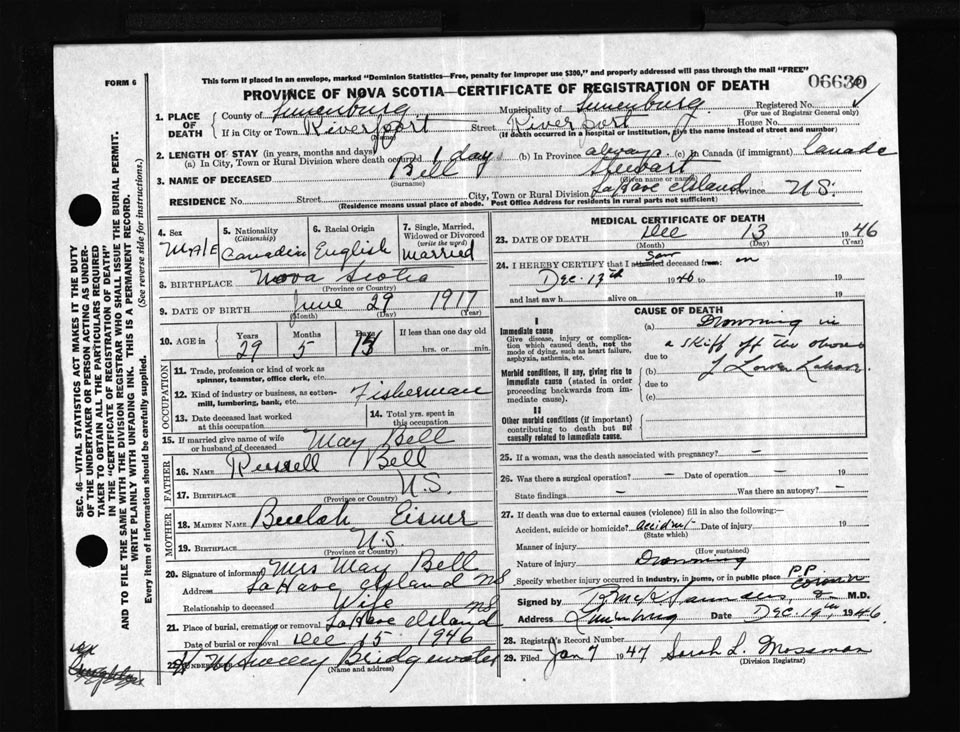 This form if placed in an envelope, marked "Dominion Statistics—Free, penalty for improper use $300," and properly addressed will pass through the mail "FREE"
FORM 6
06630
PROVINCE OF NOVA SCOTIA—CERTIFICATE OF REGISTRATION OF DEATH
SEC. 46—VITAL STATISTICS ACT MAKES IT THE DUTY
OF THE UNDERTAKER OR PERSON ACTING AS UNDER-
TAKER TO OBTAIN ALL THE PARTICULARS REQUIRED
IN THE "CERTIFICATE OF REGISTRATION OF DEATH"
AND TO FILE THE SAME WITH THE DIVISION REGISTRAR WHO SHALL ISSUE THE BURIAL PERMIT.
WRITE PLAINLY WITH UNFADING INK. THIS IS A PERMANENT RECORD.
Every item of information should be carefully supplied. (See reverse side for instructions.)
1. PLACE OF DEATH
County of Lunenburg Municipality of Lunenburg Registered No.
(For use of Registrar General only)
If in City or Town Riverport Street Riverport House No.
(Name) (If death occurred in a hospital or institution, give the name instead of street and number)
2. LENGTH OF STAY (in years, months and days)
(a) In City, Town or Rural Division where death occurred 1 day (b) In Province always (c) In Canada (if immigrant) Canade
3. NAME OF DECEASED Bell Stewart
(Surname) (Given name or names)
RESIDENCE No. Street City, Town or Rural Division LaHave Island Province N.S.
(Residence means usual place of abode. Post Office Address for residents in rural parts not sufficient)
4. Sex
MALE
5. Nationality
(Citizenship)
Canadian
6. Racial Origin
English
7. Single, Married,
Widowed or Divorced
(write the word)
Married
8. BIRTHPLACE Nova Scotia
(Province or Country)
9. DATE OF BIRTH June 29 1917
(Month) (Day) (Year)
10. AGE in Years Months Days If less than one day old
29 5 hrs. or min.
OCCUPATION
11. Trade, profession or kind of work as
spinner, teamster, office clerk, etc.
12. Kind of industry or business, as cotton-
mill, lumbering, bank, etc. Fisherman
13. Date deceased last worked
at this occupation
14. Total yrs. spent in
this occupation
15. If married give name of wife
or husband of deceased May Bell
FATHER
16. NAME Russell Bell
17. BIRTHPLACE N.S.
(Province or Country)
MOTHER
18. MAIDEN NAME Beulah Eisner
19. BIRTHPLACE N.S.
(Province or Country)
20. Signature of informant Mrs May Bell
Address LaHave Island NS
Relationship to deceased Wife
21. Place of burial, cremation or removal LaHave Island NS
Date of burial or removal Dec 15 1946
22. UNDERTAKER Bridgewater
(Name and address)
MEDICAL CERTIFICATE OF DEATH
23. DATE OF DEATH Dec 13 1946
(Month) (Day) (Year)
24. I HEREBY CERTIFY that I attended saw deceased from: on
Dec. 13th 1946 to 19
and last saw h alive on 19
CAUSE OF DEATH
I
Immediate cause
Give disease, injury or complica-
tion which caused death, not the
mode of dying, such as heart failure,
asphyxia, asthenia, etc.
(a) Drowning in
a skiff off the shores
due to
Morbid conditions, if any, giving rise to
immediate cause (stated in order
proceeding backwards from im-
mediate cause).
(b) of Lower Lahave
due to
(c)
II
Other morbid conditions (if important)
contributing to death but not
causally related to immediate cause.
25. If a woman, was the death associated with pregnancy? –
26. Was there a surgical operation? – Date of operation – 19
State findings – Was there an autopsy? –
27. If death was due to external causes (violence) fill in also the following:—
Accident, suicide or homicide? accident Date of injury 19
(State which)
Manner of injury
(How sustained)
Nature of injury Drowning
Specify whether injury occurred in industry, in home, or in public place P.P.
coroner
Signed by M.D.
Address Lunenburg Date Dec. 19th, 1946
28. Registrar's Record Number
29. Filed Jan 7 1947 Sarah L. Mossman
(Division Registrar)